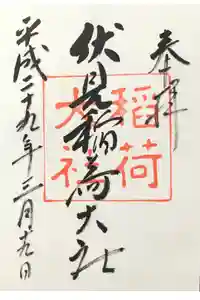 奉拝
伏見稲荷大社
稲荷
大社
平成二十九年三月十九日